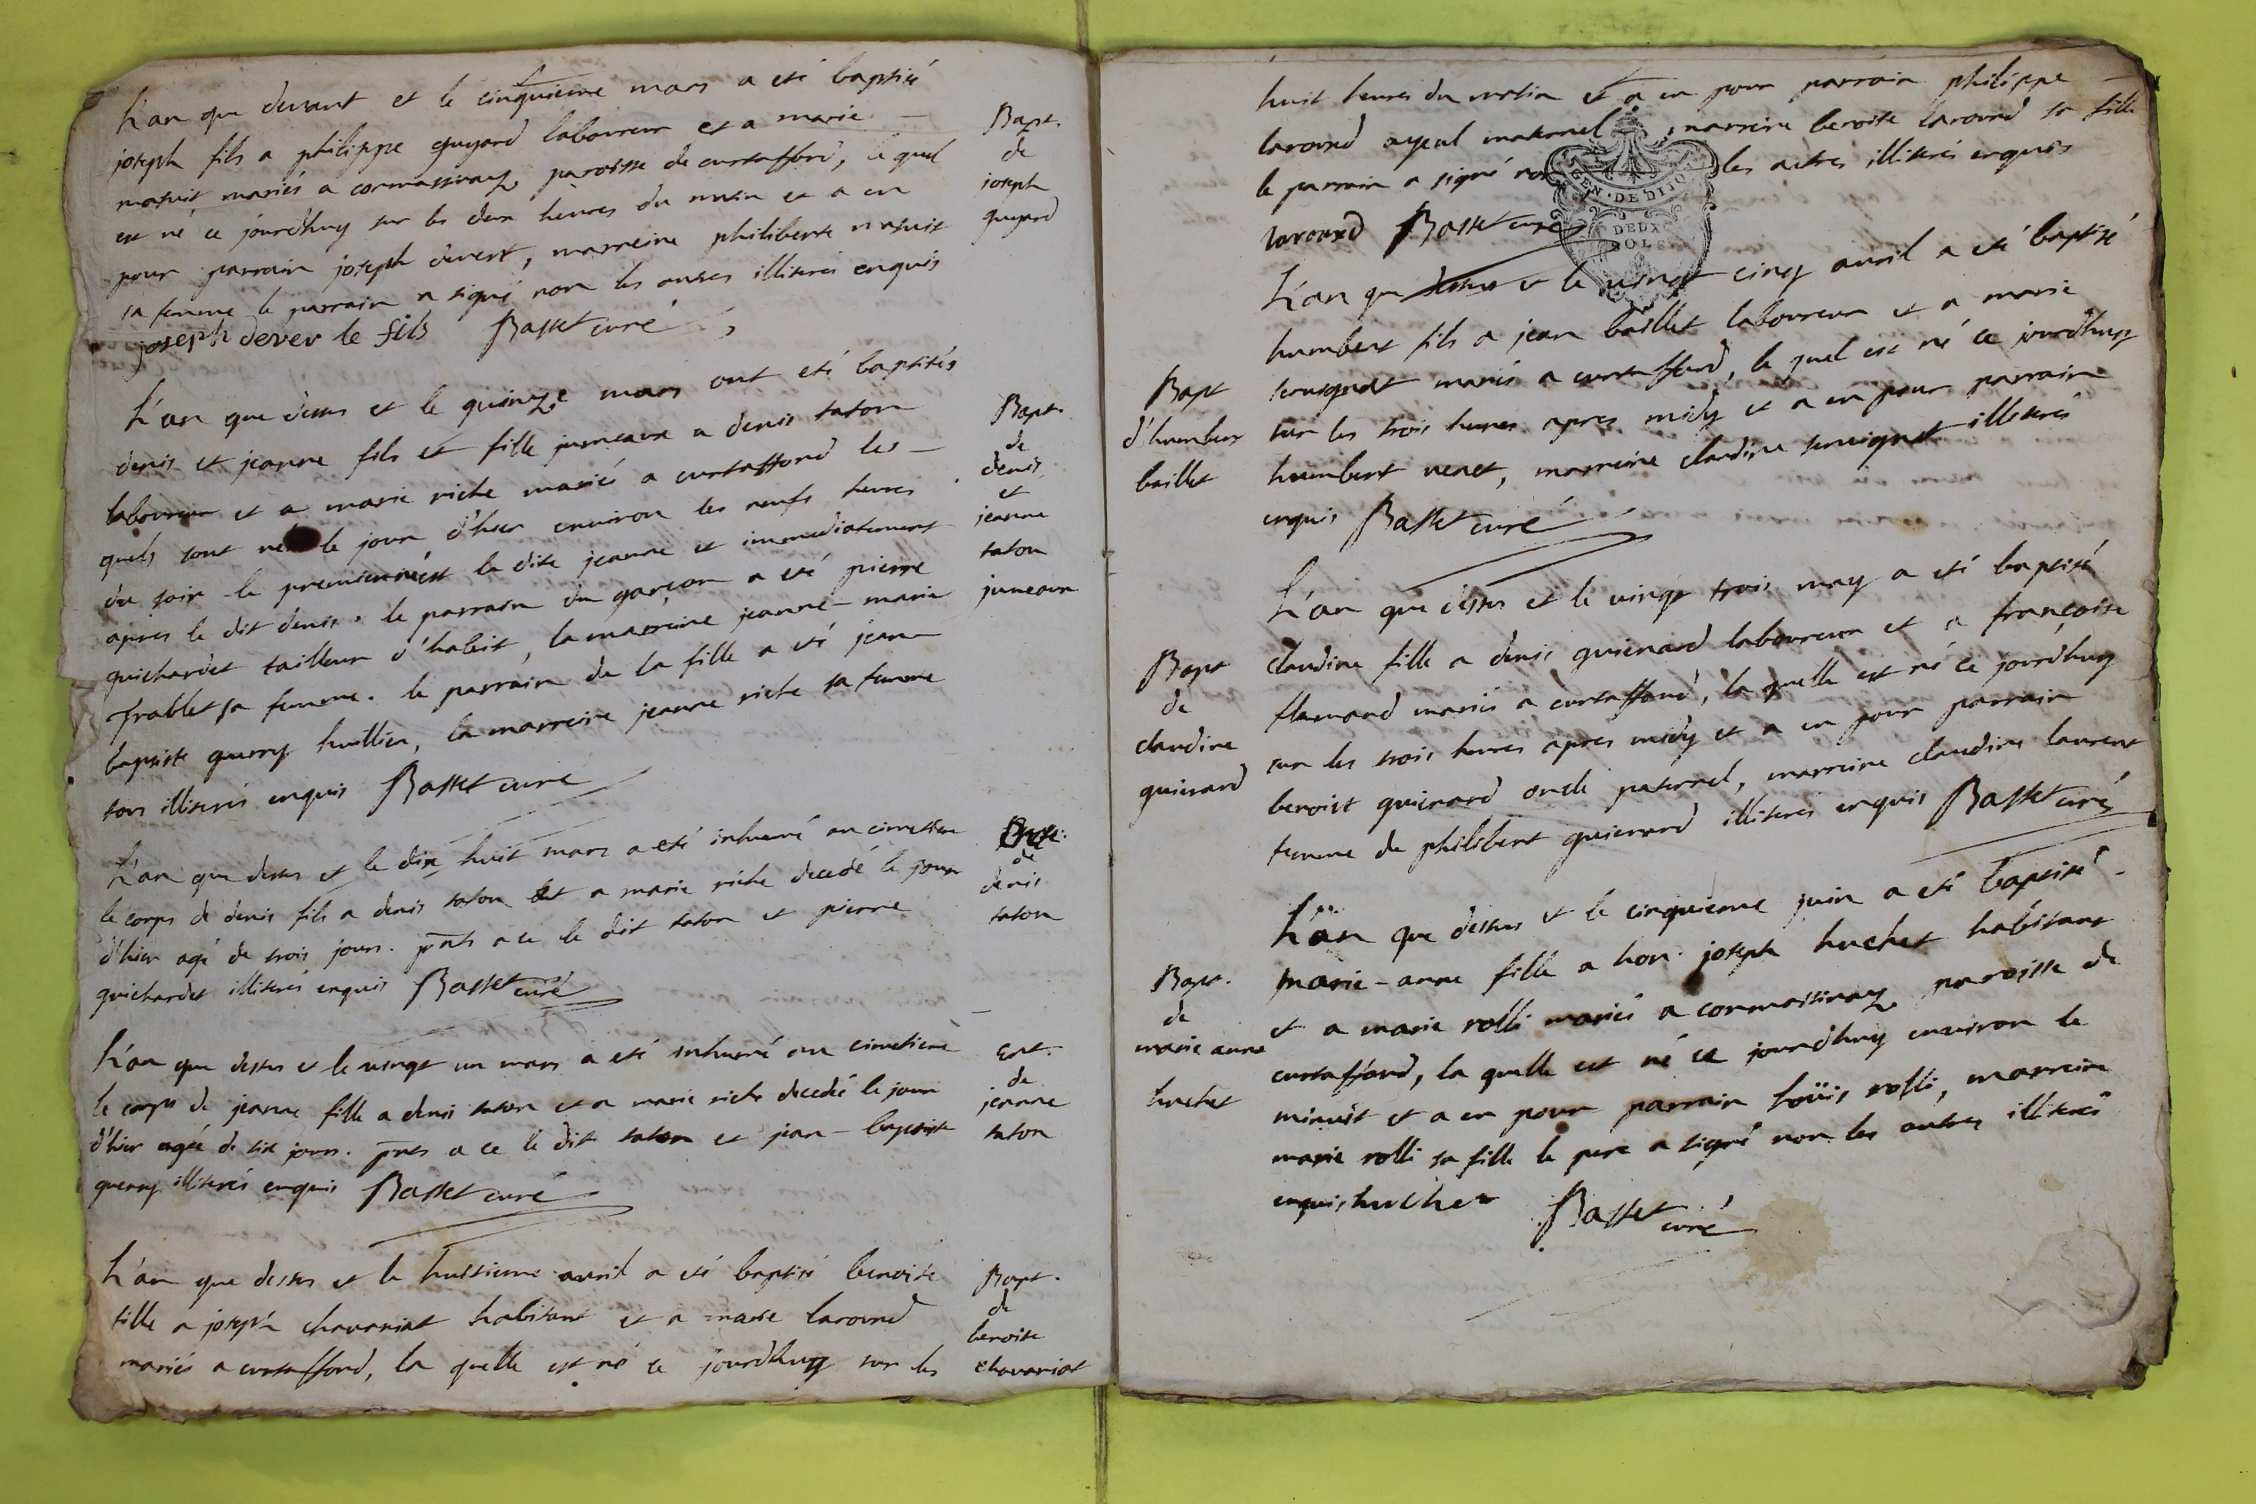 L'an que devant et le cinquieme mars a eté baptisé
joseph fils a philippe guyard laboureur et a marie
matuit mariés a cormassinay paroisse de curtaffond, le quel
est né ce jourdhuy sur les deux heures du matin et a eu
pour parrain joseph devert, marreine philiberte matuit
sa femme le parrain a signé non les autres illiterés enquis
joseph dever le fils Basset curé
Bapt.
de
joseph
guyard
L'an que dessus et le quinze mars ont eté baptisés
denis et jeanne fils et fille jumeaux a denis taton
laboureur et a marie riche mariés a curtaffond les
quels sont nés le jour d'hier environ les neufs heures
du soir la premiere est la dite jeanne et immediatement
apres le dit denis. le parrain du garçon a eté pierre
guichardet tailleur d'habit, la marreine jeanne-marie
frablet sa femme. le parrain de la fille a eté jean
baptiste guerry huillier, la marreine jeanne riche sa femme
tous illiterés enquis Basset curé
Bapt.
de
denis
et
jeanne
taton
jumeaux
L'an que dessus et le dix huit mars a eté inhumé au cimetiere
le corps de denis fils a denis taton et a marie riche decedé le jour
d'hier agé de trois jours. pnts a ce le dit taton et pierre
guichardet illiterés enquis Basset curé
de
denis
taton
L'an que dessus et le vingt un mars a eté inhumé au cimetiere
le corps de jeanne fille a denis taton et a marie riche decedée le jour
d'hier agée de six jours. pnts a ce le dit taton et jean-baptiste
guerry illiterés enquis Basset curé
Ent.
de
jeanne
taton
L'an que dessus et le huitieme avril a eté baptisé benoite
fille a joseph chavariat habitant et a marie laround
mariés a curtaffond, la quelle est né ce jourdhuy sur les
Bapt.
de
benoite
chavariat
huit heures du matin et a eu pour parrain philippe
laround ayeul maternel, marreine benoite laround sa fille
le parrain a signé non les autres illiterés enquis
laround Basset curé
GEN. DE DIJON
DEUX
SOLS
L'an que dessus et le vingt cinq avril a eté baptisé
humbert fils a jean baillet laboureur et a marie
servignat mariés a curtaffond, le quel est né ce jourdhuy
sur les trois heures apres midy et a eu pour parrain
humbert venet, marreine claudine servignat illiterés
enquis Basset curé
Bapt
d'humbert
baillet
L'an que dessus et le vingt trois may a eté baptisé
claudine fille a denis guienard laboureur et a françoise
flamand mariés a curtaffond, la quelle est né ce jourdhuy
sur les trois heures apres midy et a eu pour parrain
benoist guienard oncle paternel, marreine claudine laurent
femme de philibert guienard illiterés enquis Basset curé
Bapt
de
claudine
guienard
L'an que dessus et le cinquieme juin a eté baptisé
marie-anne fille a hon. joseph huchet habitant
et a marie rolli mariés a cormassinay paroisse de
curtaffond, la quelle est né ce jourdhuy environ le
minuit et a eu pour parrain loüis rolli, marreine
marie rolli sa fille le pere a signé non les autres illiterés
enquis huchet Basset curé
Bapt.
de
marie anne
huchet